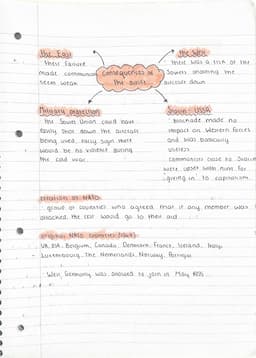 The East
Their failure
made communism
seem weak.
Consequences of
the airlift
The West
There was a risk of the
Soviets shooting the
aircraft down
Military protection
The Soviet Union could have
easily shot down the aircraft
being used, early sign there
would be no violence during
the cold war.
Stalin USSR
blockade made no
impact on Western Forces
and was basically
useless
communists close to Stalin
were upset with him for
giving in to capitalism.
creation of NATO
group of countries who agreed that if any member was
attacked the rest would go to their aid
original NATO countries
UK, USA, Belgium, Canada, Denmark, France, Iceland, Italy
Luxembourg, The Netherlands, Norway, Portugal
West Germany was allowed to join in May 1955